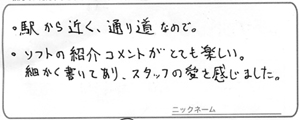 ・駅から近く、通り道なので。
・ソフトの紹介コメントがとても楽しい。
細かく書いてあり、スタッフの愛を感じました。
ニックネーム